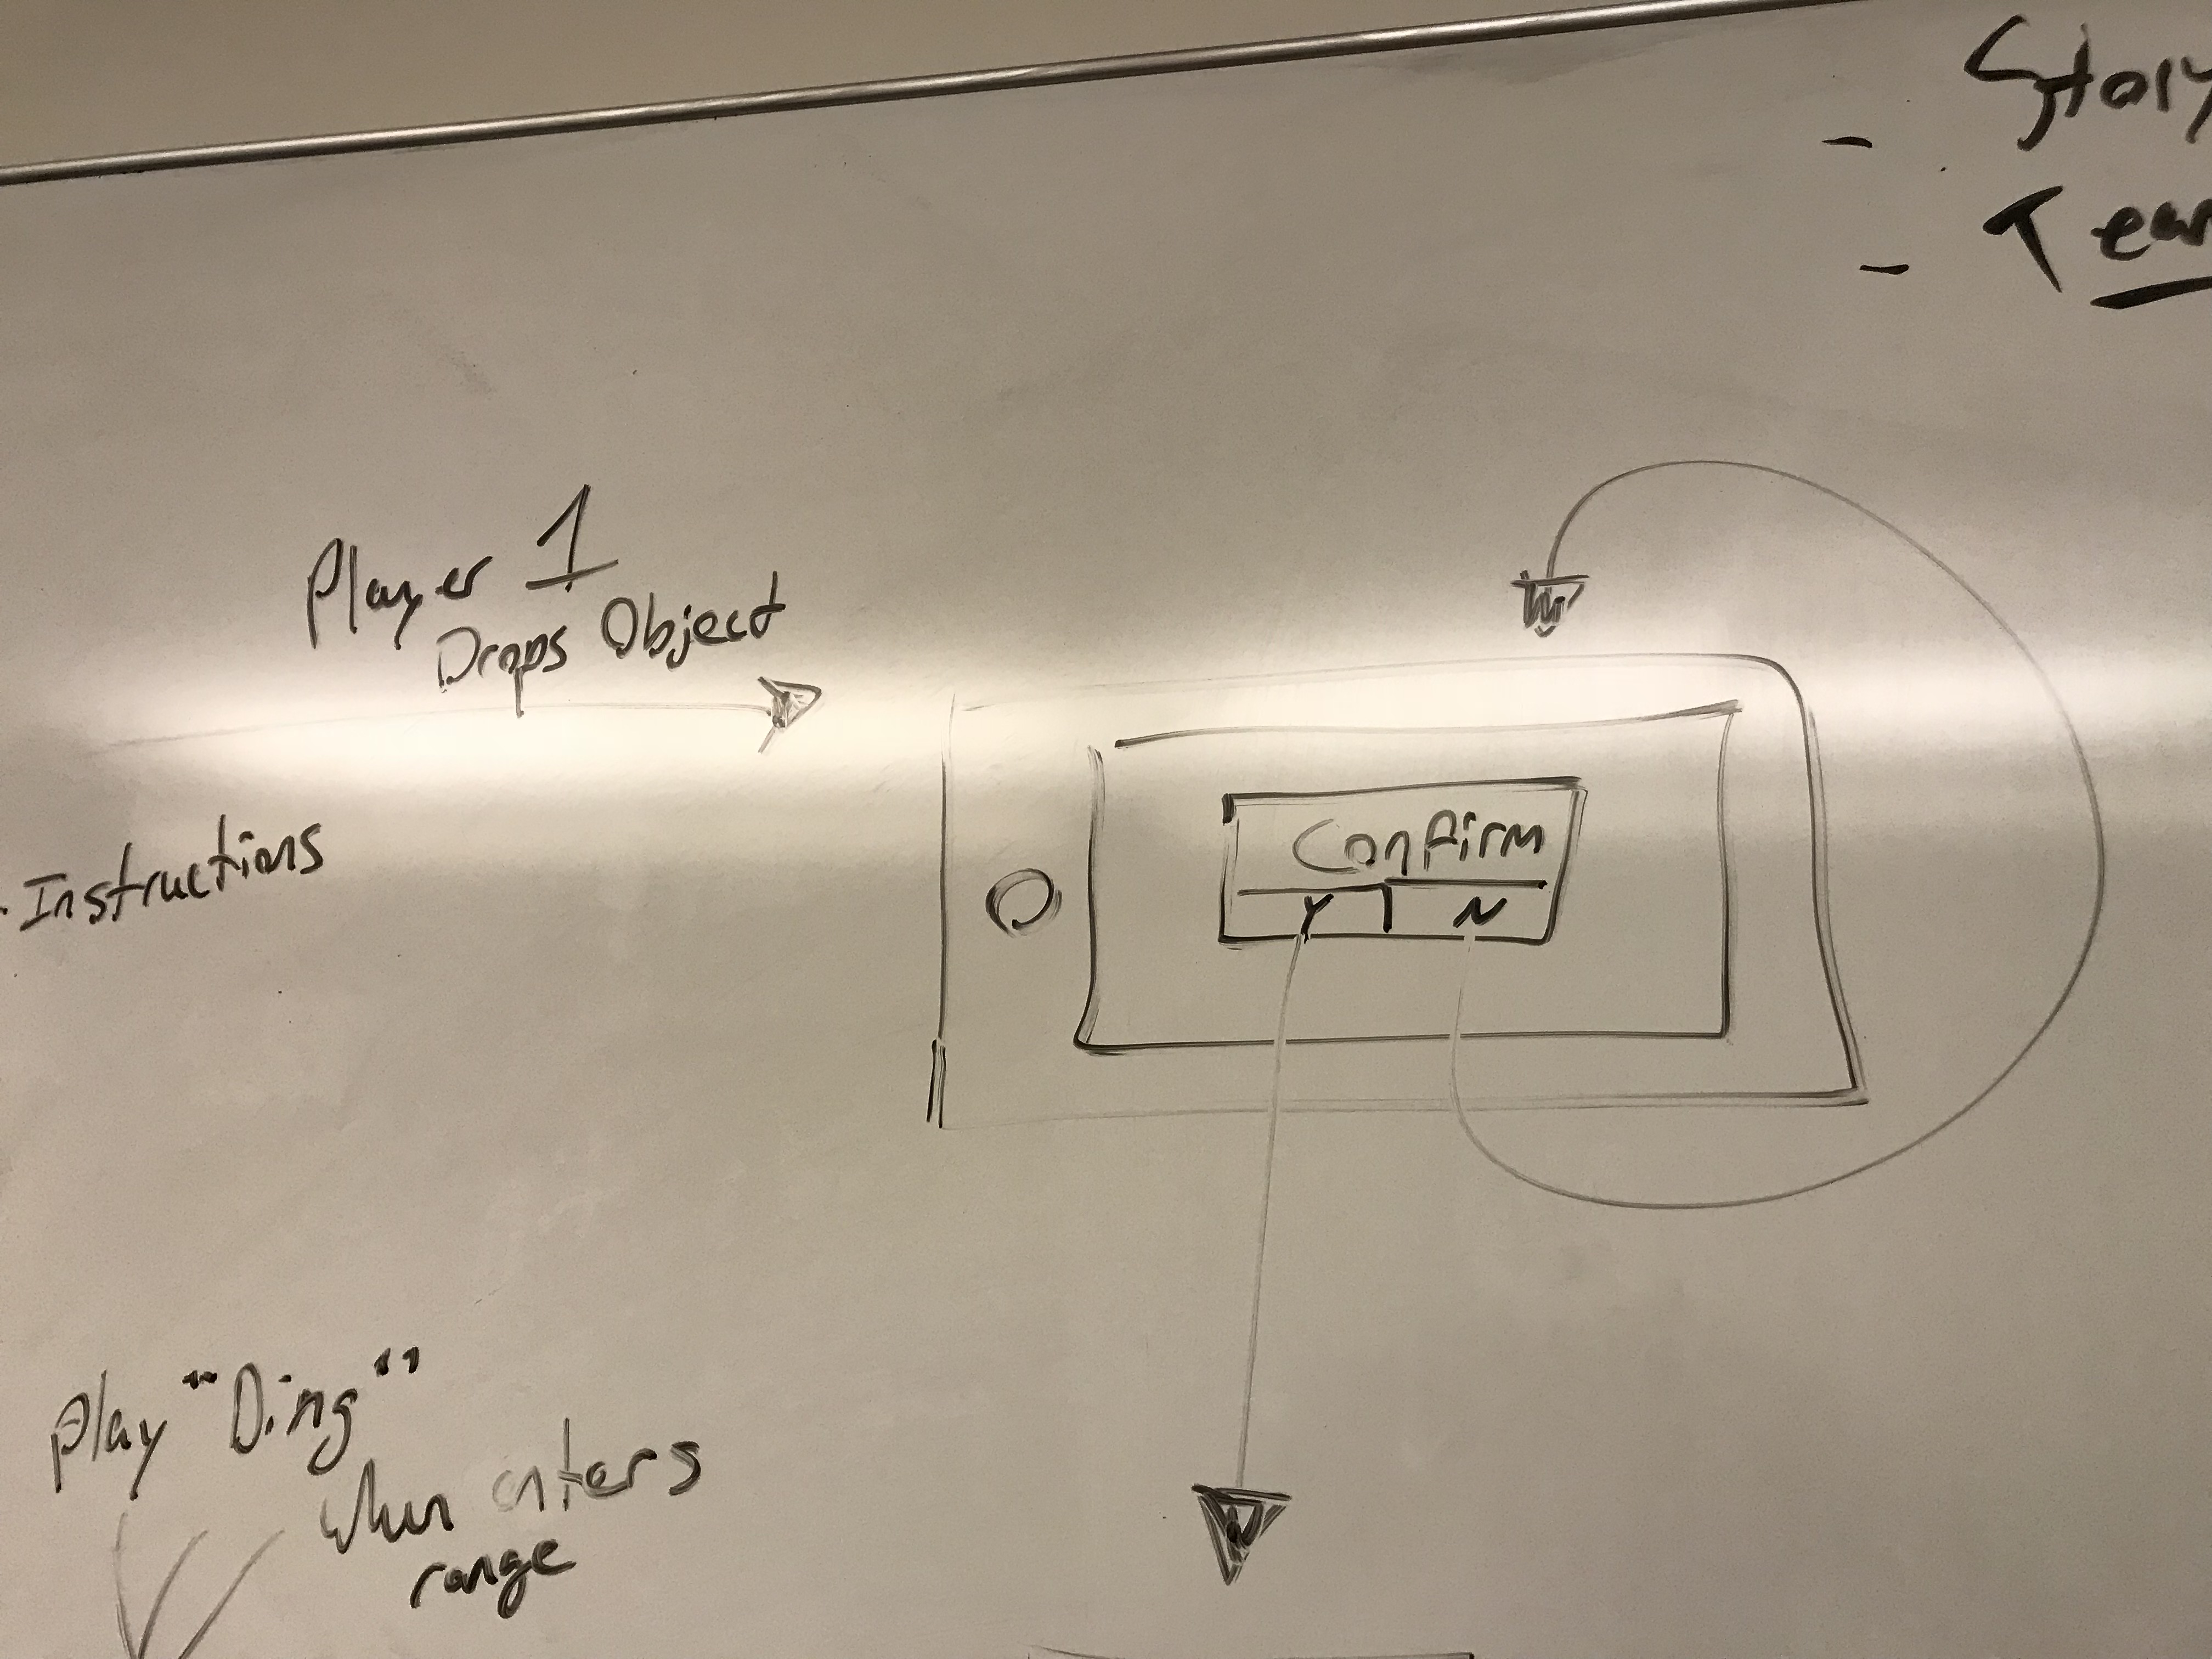 - Story
-
Player 1
Drops Object
Confirm
Y N
. Instructions
Play "Ding"
When enters
range